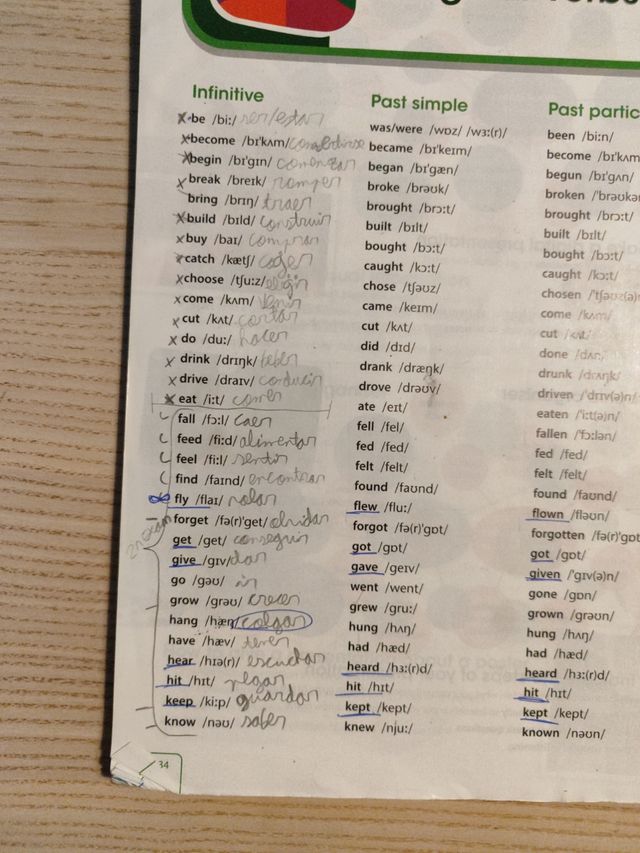 Infinitive Past simple Past partic
be /biː/ ser/estar was/were /wɒz/ /wɜː(r)/ been /biːn/
become /bɪˈkʌm/ became /bɪˈkeɪm/ become /bɪˈkʌm
begin /bɪˈgɪn/ comenzar began /bɪˈgæn/ begun /bɪˈgʌn/
break /breɪk/ romper broke /brəʊk/ broken /ˈbrəʊkə
bring /brɪŋ/ traer brought /brɔːt/ brought /brɔːt/
build /bɪld/ construir built /bɪlt/ built /bɪlt/
buy /baɪ/ comprar bought /bɔːt/ bought /bɔːt/
catch /kætʃ/ coger caught /kɔːt/ caught /kɔːt/
choose /tʃuːz/ eligir chose /tʃəʊz/ chosen /ˈtʃəʊz(ə)
come /kʌm/ venir came /keɪm/ come /kʌm/
cut /kʌt/ cortar cut /kʌt/ cut /kʌt/
do /duː/ hacer did /dɪd/ done /dʌn/
drink /drɪŋk/ beber drank /dræŋk/ drunk /drʌŋk/
drive /draɪv/ conducir drove /drəʊv/ driven /ˈdrɪv(ə)n/
eat /iːt/ comer ate /eɪt/ eaten /ˈiːt(ə)n/
fall /fɔːl/ caer fell /fel/ fallen /ˈfɔːlən/
feed /fiːd/ alimentar fed /fed/ fed /fed/
feel /fiːl/ sentir felt /felt/ felt /felt/
find /faɪnd/ encontrar found /faʊnd/ found /faʊnd/
fly /flaɪ/ volar flew /fluː/ flown /fləʊn/
forget /fə(r)ˈget/ olvidar forgot /fə(r)ˈgɒt/ forgotten /fə(r)ˈgɒt
get /get/ conseguir got /gɒt/ got /gɒt/
give /gɪv/ dar gave /geɪv/ given /ˈgɪv(ə)n/
go /gəʊ/ ir went /went/ gone /gɒn/
grow /grəʊ/ crecer grew /gruː/ grown /grəʊn/
hang /hæŋ/ colgar hung /hʌŋ/ hung /hʌŋ/
have /hæv/ tener had /hæd/ had /hæd/
hear /hɪə(r)/ escuchar heard /hɜː(r)d/ heard /hɜː(r)d/
hit /hɪt/ pegar hit /hɪt/ hit /hɪt/
keep /kiːp/ guardar kept /kept/ kept /kept/
know /nəʊ/ saber knew /njuː/ known /nəʊn/
34